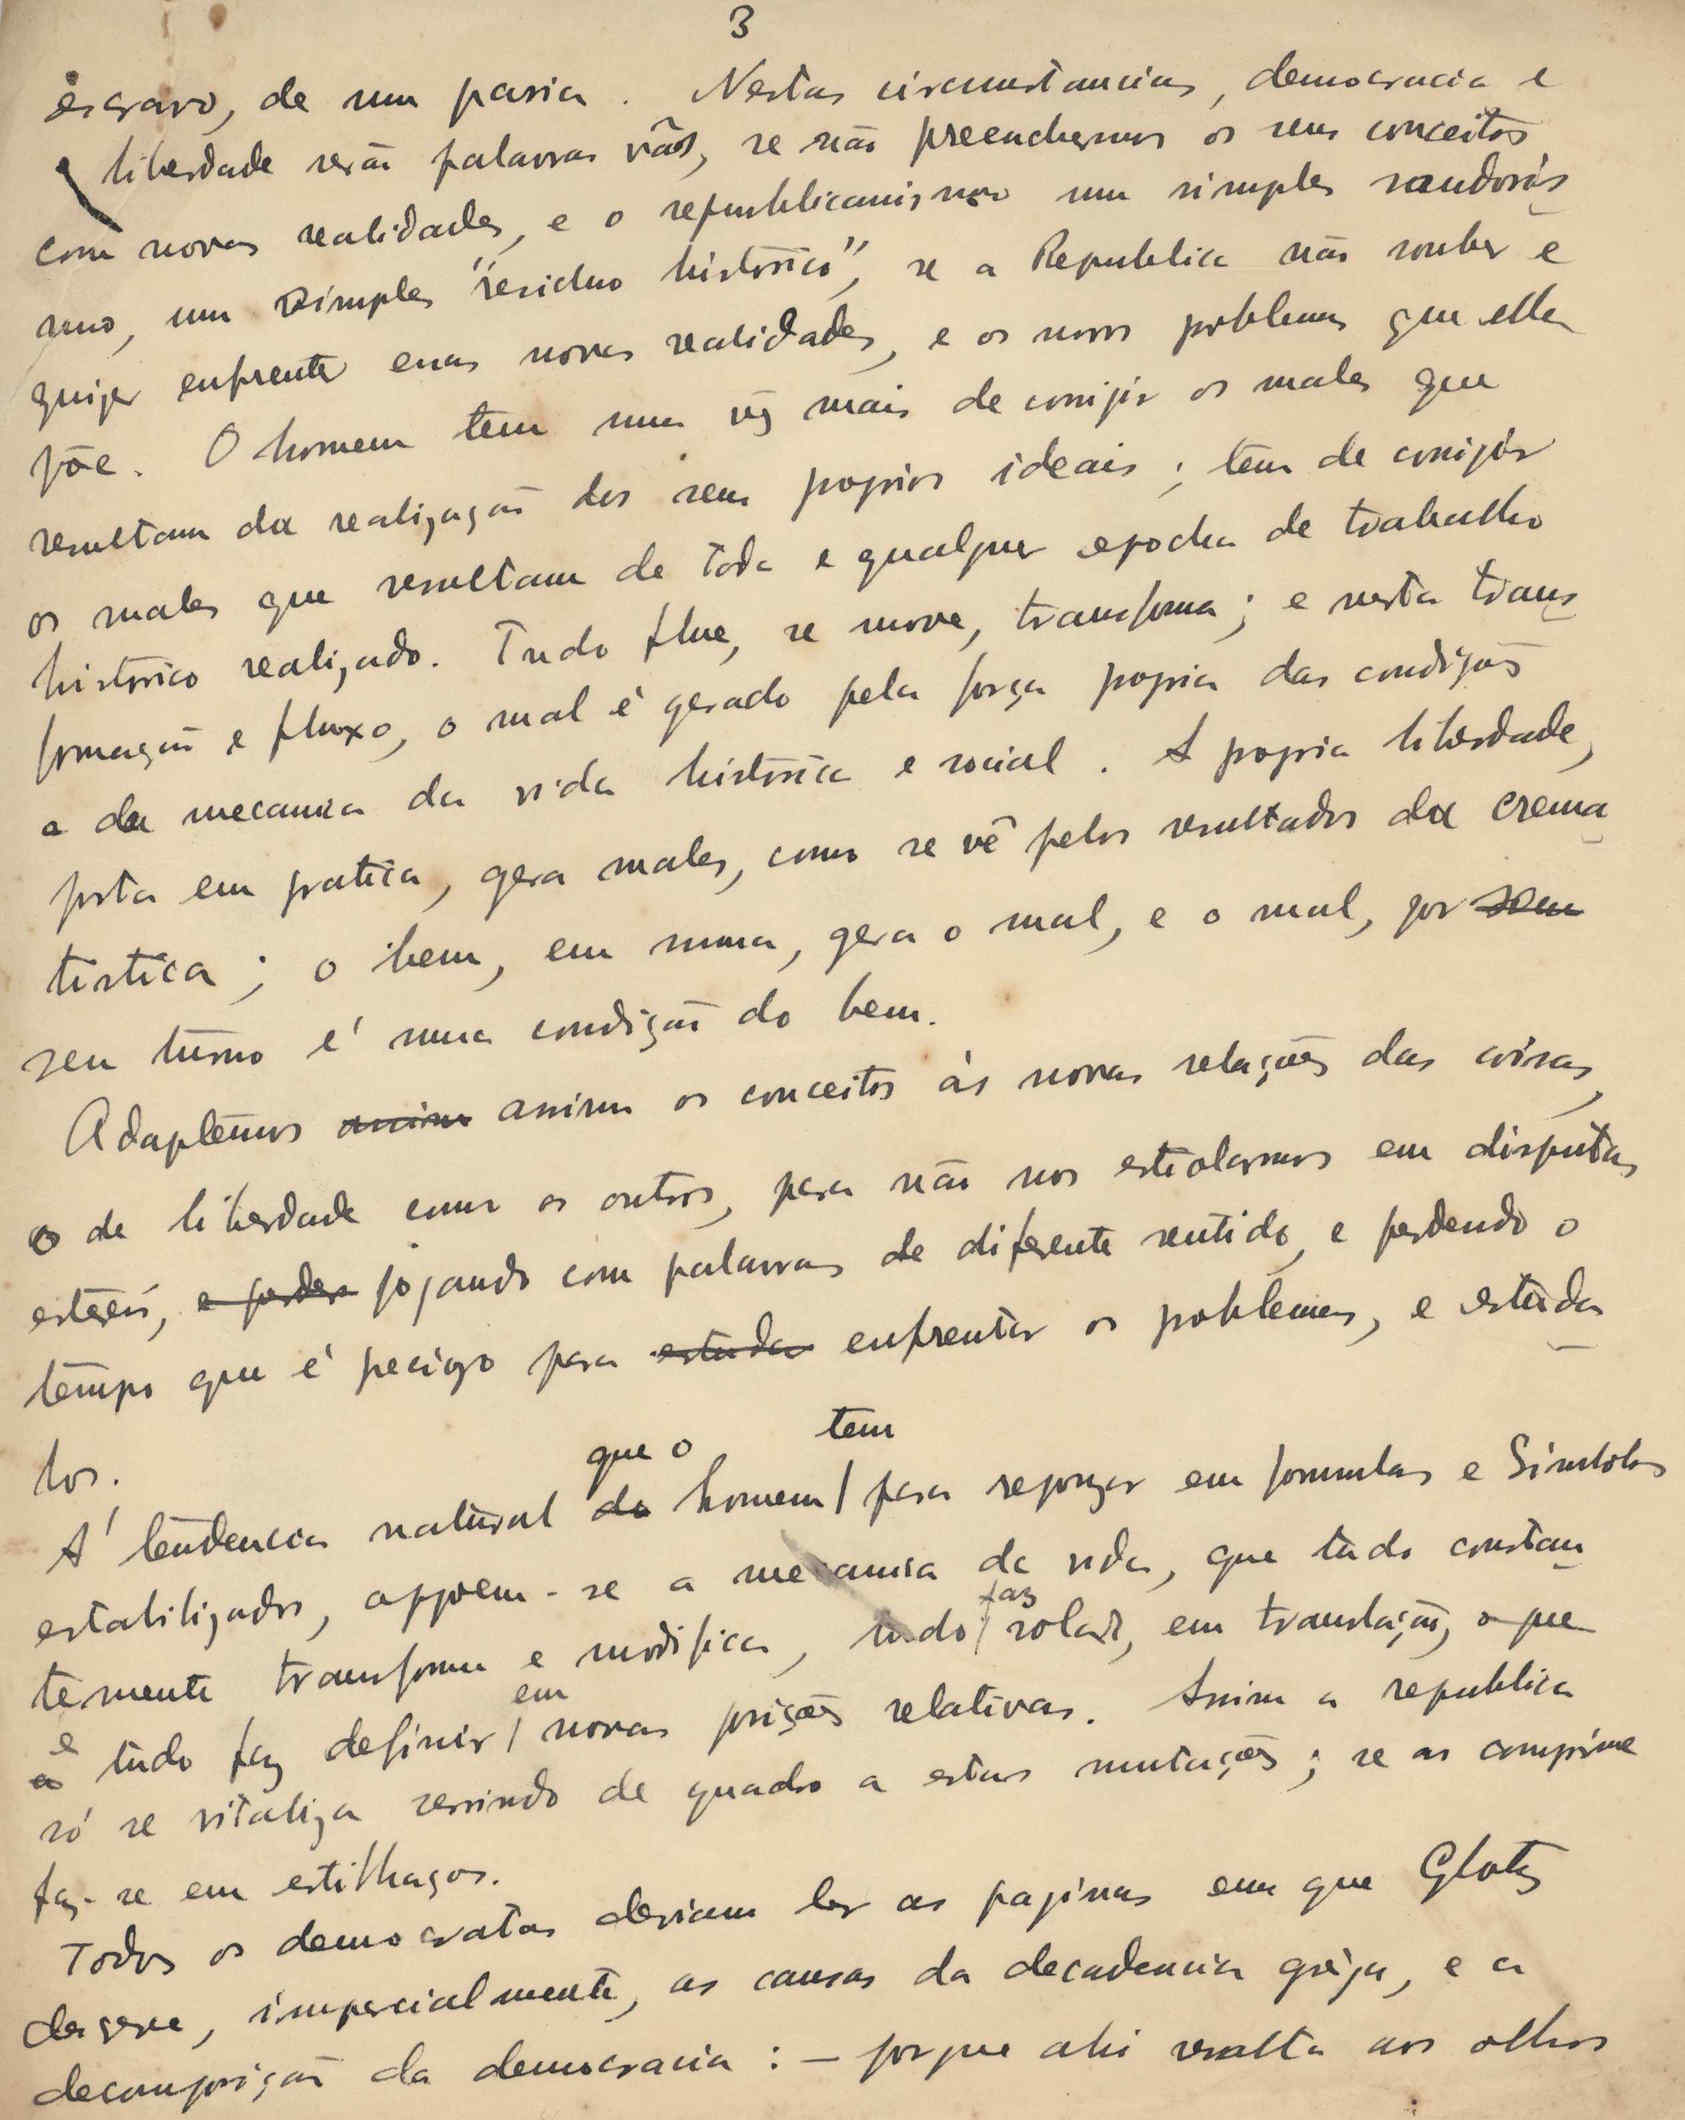 3
escravo, de um paria. Nestas circumstancias, democracia e
liberdade serão palavras vãs, se não preenchermos os seus conceitos
com novas realidades, e o republicanismo um simples saudosis
mo, um simples "residuo historico", se a Republica não souber e
quizer enfrentar essas novas realidades, e os novos problemas que ella
põe. O homem tem uma vez mais de corrigir os males que
resultam da realização dos seus proprios ideais; tem de corrigir
os males que resultam de toda e qualquer epocha de trabalho
historico realizado. Tudo flue, se move, transforma; e nesta trans
formação e fluxo, o mal é gerado pela força propria das condições
e da mecanica da vida historica e social. A propria liberdade,
posta em pratica, gera males, como se vê pelos resultados da crema
tistica; o bem, em suma, gera o mal, e o mal, por sem
seu turno é uma condição do bem.
Adaptemos assim assim os conceitos ás novas relações das coisas,
o de liberdade como os outros, para não nos estiolarmos em disputas
estereis, e perder jogando com palavras de diferente sentido, e perdendo o
tempo que é preciso para estudar enfrentar os problemas, e estuda
los.
que o tem
A' tendencia natural do homem / para repouzar em formulas e Simbolos
estabilizados, oppoem-se a mecanica da vida, que tudo constan
faz
temente transforma e modifica, tudo / rolar, em translação, o que
e em
a tudo faz definir / novas posições relativas. Assim a republica
só se vitaliza servindo de quadro a estas mutações; se as comprime
faz-se em estilhaços.
Todos os democratas deviam ler as paginas em que Glotz
descreve, imparcialmente, as causas da decadencia grega, e a
decomposição da democracia: - porque ahi resalta aos olhos